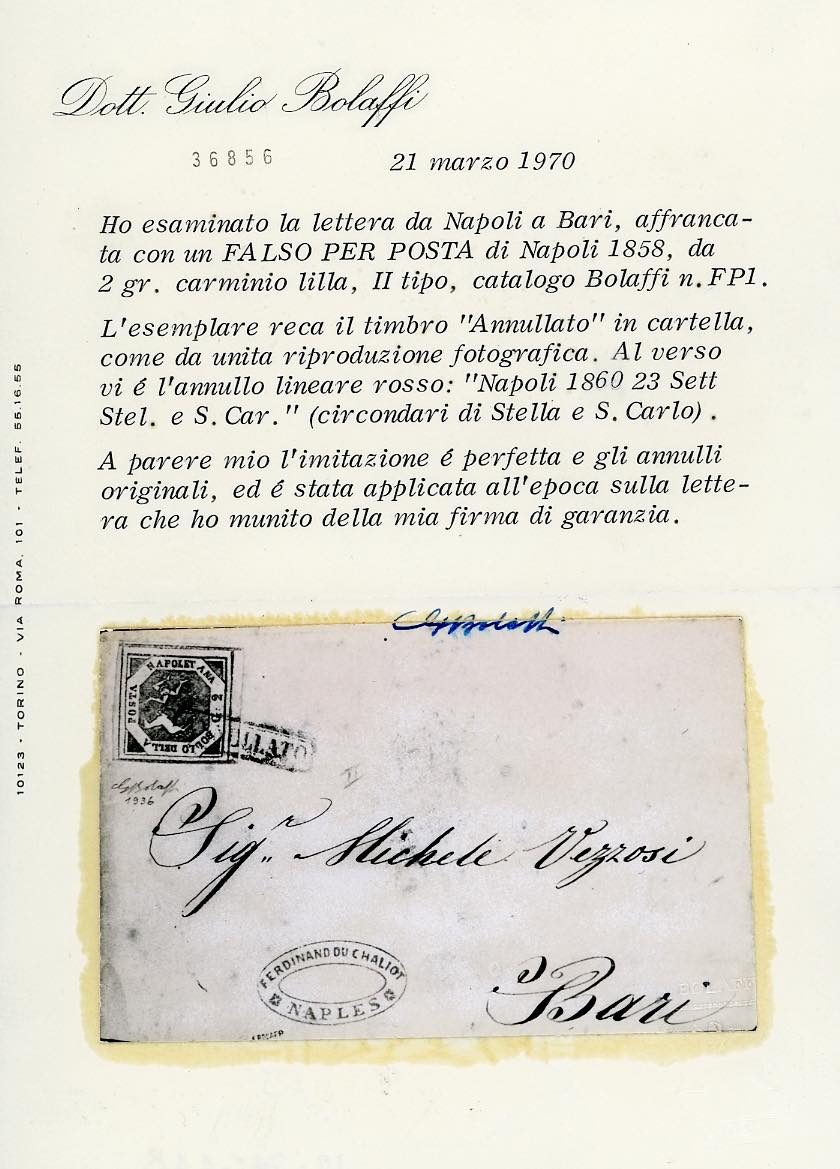 Dott. Giulio Bolaffi
36856
21 marzo 1970
Ho esaminato la lettera da Napoli a Bari, affranca-
ta con un FALSO PER POSTA di Napoli 1858, da
2 gr. carminio lilla, II tipo, catalogo Bolaffi n. FP1.
L'esemplare reca il timbro "Annullato" in cartella,
come da unita riproduzione fotografica. Al verso
vi é l'annullo lineare rosso: "Napoli 1860 23 Sett
Stel. e S. Car." (circondari di Stella e S. Carlo).
A parere mio l'imitazione é perfetta e gli annulli
originali, ed é stata applicata all'epoca sulla lette-
ra che ho munito della mia firma di garanzia.
10123 - TORINO - VIA ROMA, 101 - TELEF. 55.16.55
GBolaffi
POSTA NAPOLETANA
BOLLO DELLA
G. 2
LLATO
GBolaffi
1936
II
Sigr. Michele Vezzosi
FERDINAND DU CHALIOT
NAPLES
Bari
A. BOLAFFI